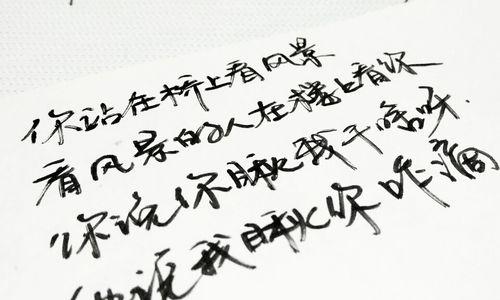 你站在桥上看风景
看风景的人在楼上看你
你说你瞅我干啥呀.
他说我瞅你咋滴